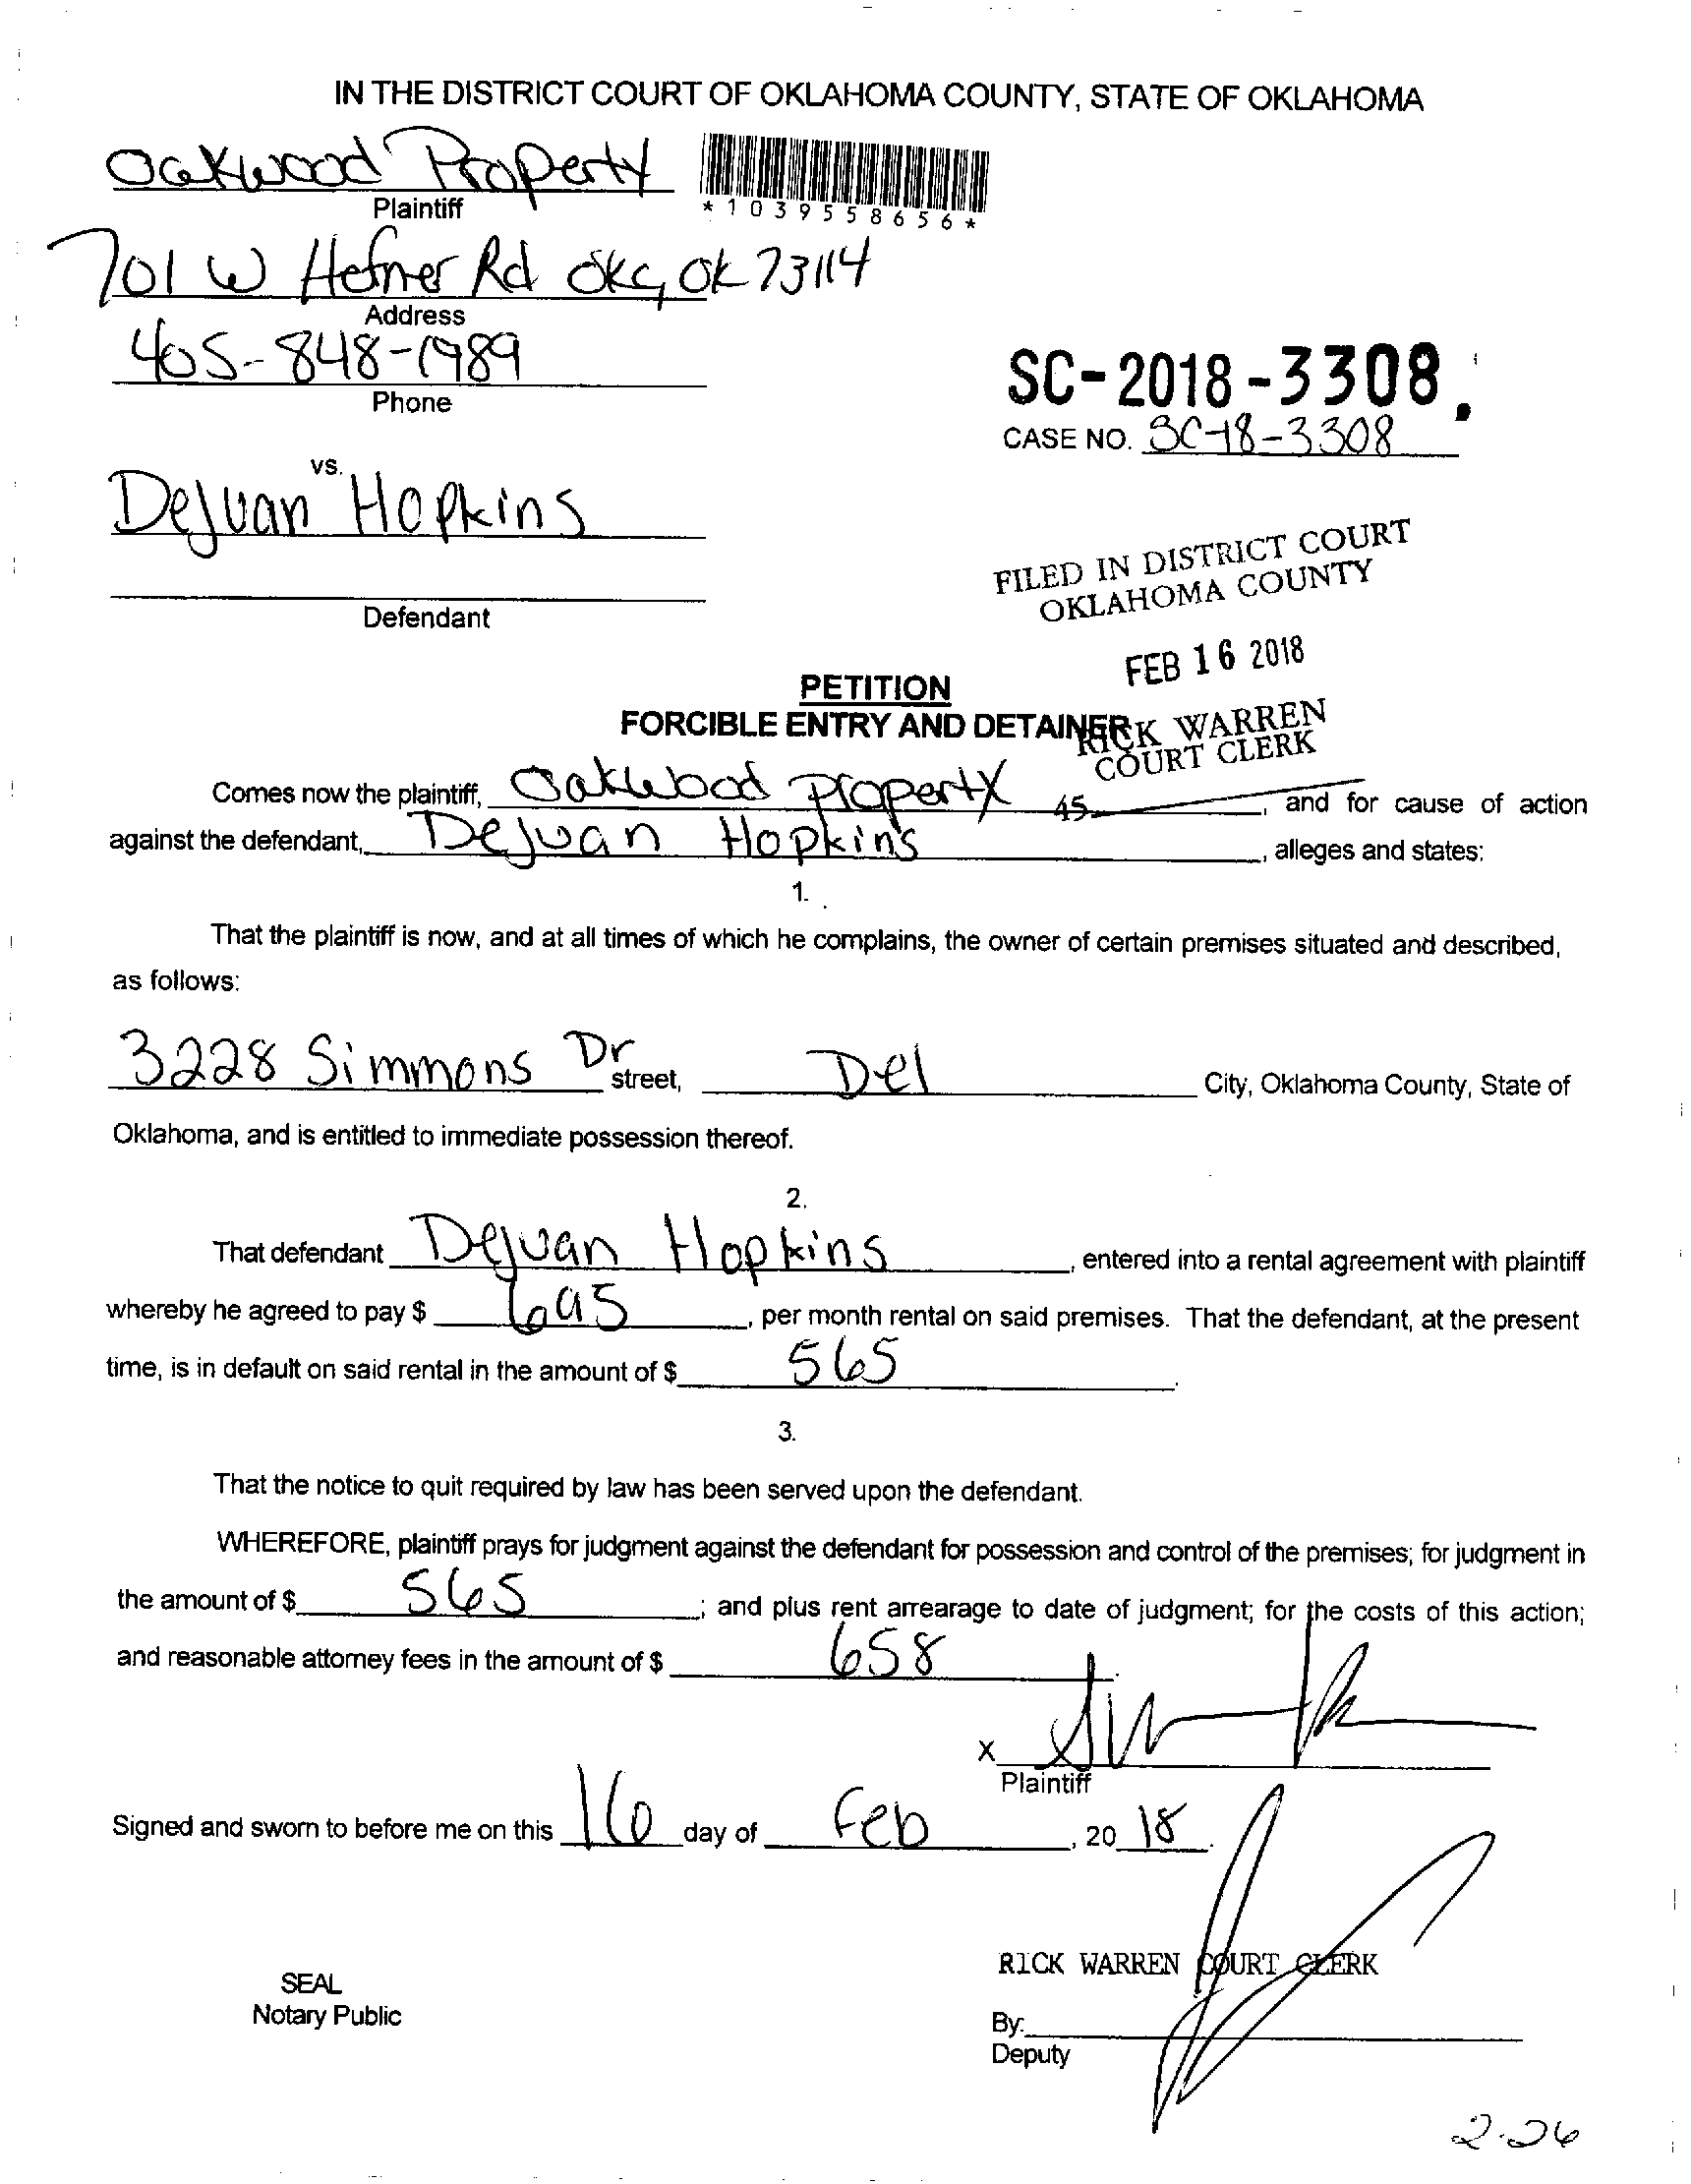 IN THE DISTRICT COURT OF OKLAHOMA COUNTY, STATE OF OKLAHOMA
Oakwood Property
Plaintiff
*1039558656*
701 W Hefner Rd OKC, OK 73114
Address
405-848-1989
Phone
SC-2018-3308.
CASE NO. SC-18-3308
vs.
Dejuan Hopkins
Defendant
FILED IN DISTRICT COURT
OKLAHOMA COUNTY
FEB 16 2018
PETITION
FORCIBLE ENTRY AND DETAINER
RICK WARREN
COURT CLERK
Comes now the plaintiff, Oakwood Property 45 , and for cause of action
against the defendant, Dejuan Hopkins , alleges and states:
1.
That the plaintiff is now, and at all times of which he complains, the owner of certain premises situated and described,
as follows:
3228 Simmons Dr street, Del City, Oklahoma County, State of
Oklahoma, and is entitled to immediate possession thereof.
2.
That defendant Dejuan Hopkins , entered into a rental agreement with plaintiff
whereby he agreed to pay $ 695 , per month rental on said premises. That the defendant, at the present
time, is in default on said rental in the amount of $ 565 .
3.
That the notice to quit required by law has been served upon the defendant.
WHEREFORE, plaintiff prays for judgment against the defendant for possession and control of the premises; for judgment in
the amount of $ 565 ; and plus rent arrearage to date of judgment; for the costs of this action;
and reasonable attorney fees in the amount of $ 658 .
X
Plaintiff
Signed and sworn to before me on this 16 day of Feb , 20 18 .
RICK WARREN COURT CLERK
SEAL
Notary Public
By:
Deputy
2-26